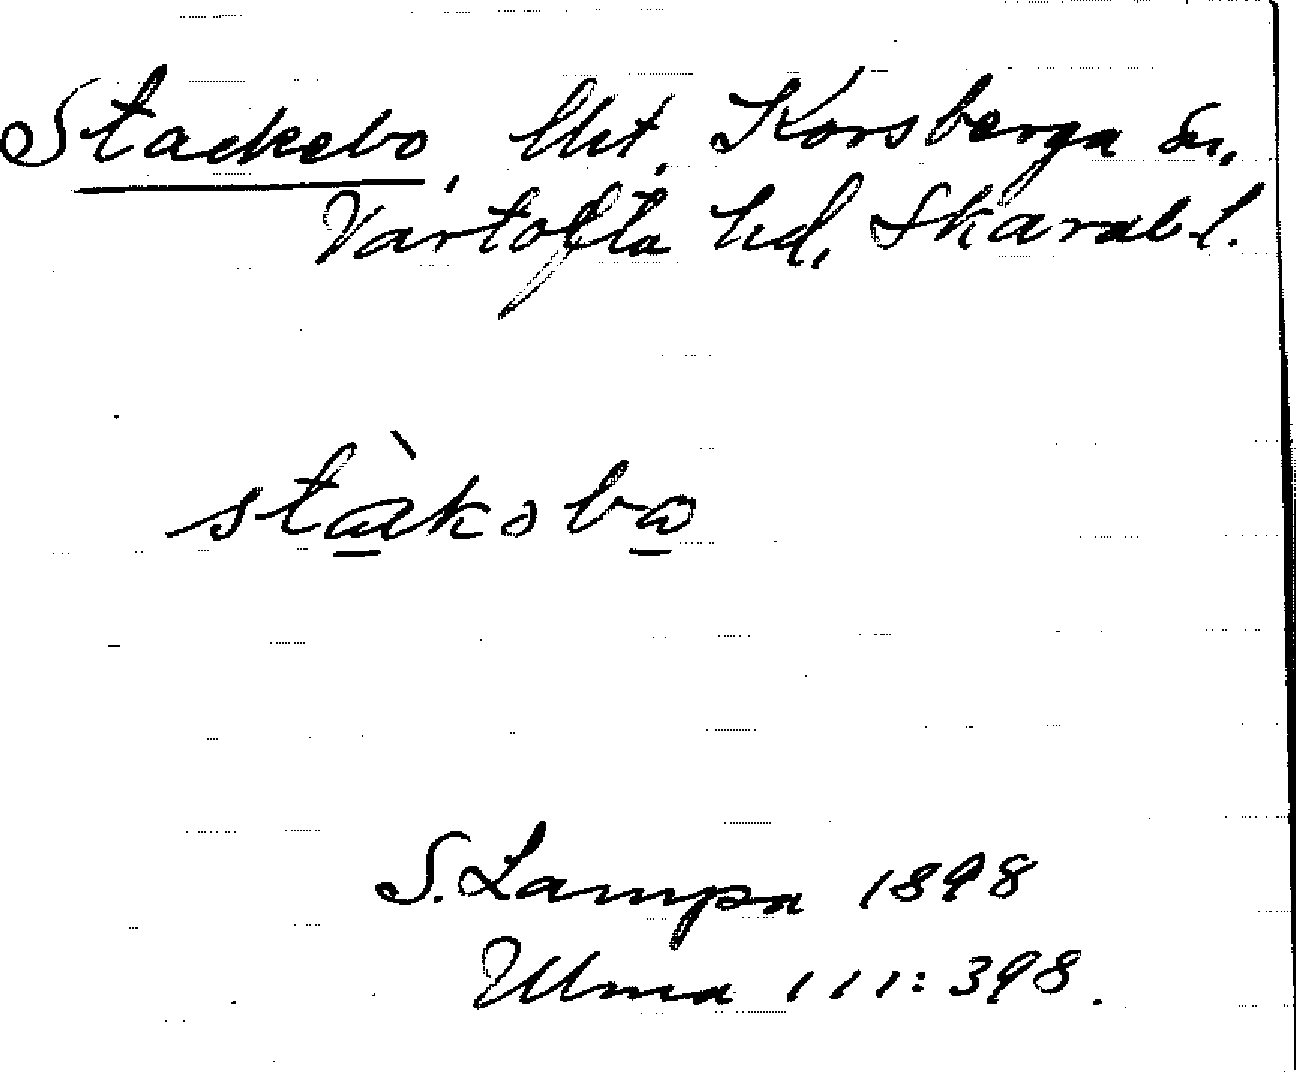 Stackebo, Uht. Korsberga sn,
Vartofta hd, Skarab. l.
stàkəba
S. Lampa 1898
Ulma 111:398.